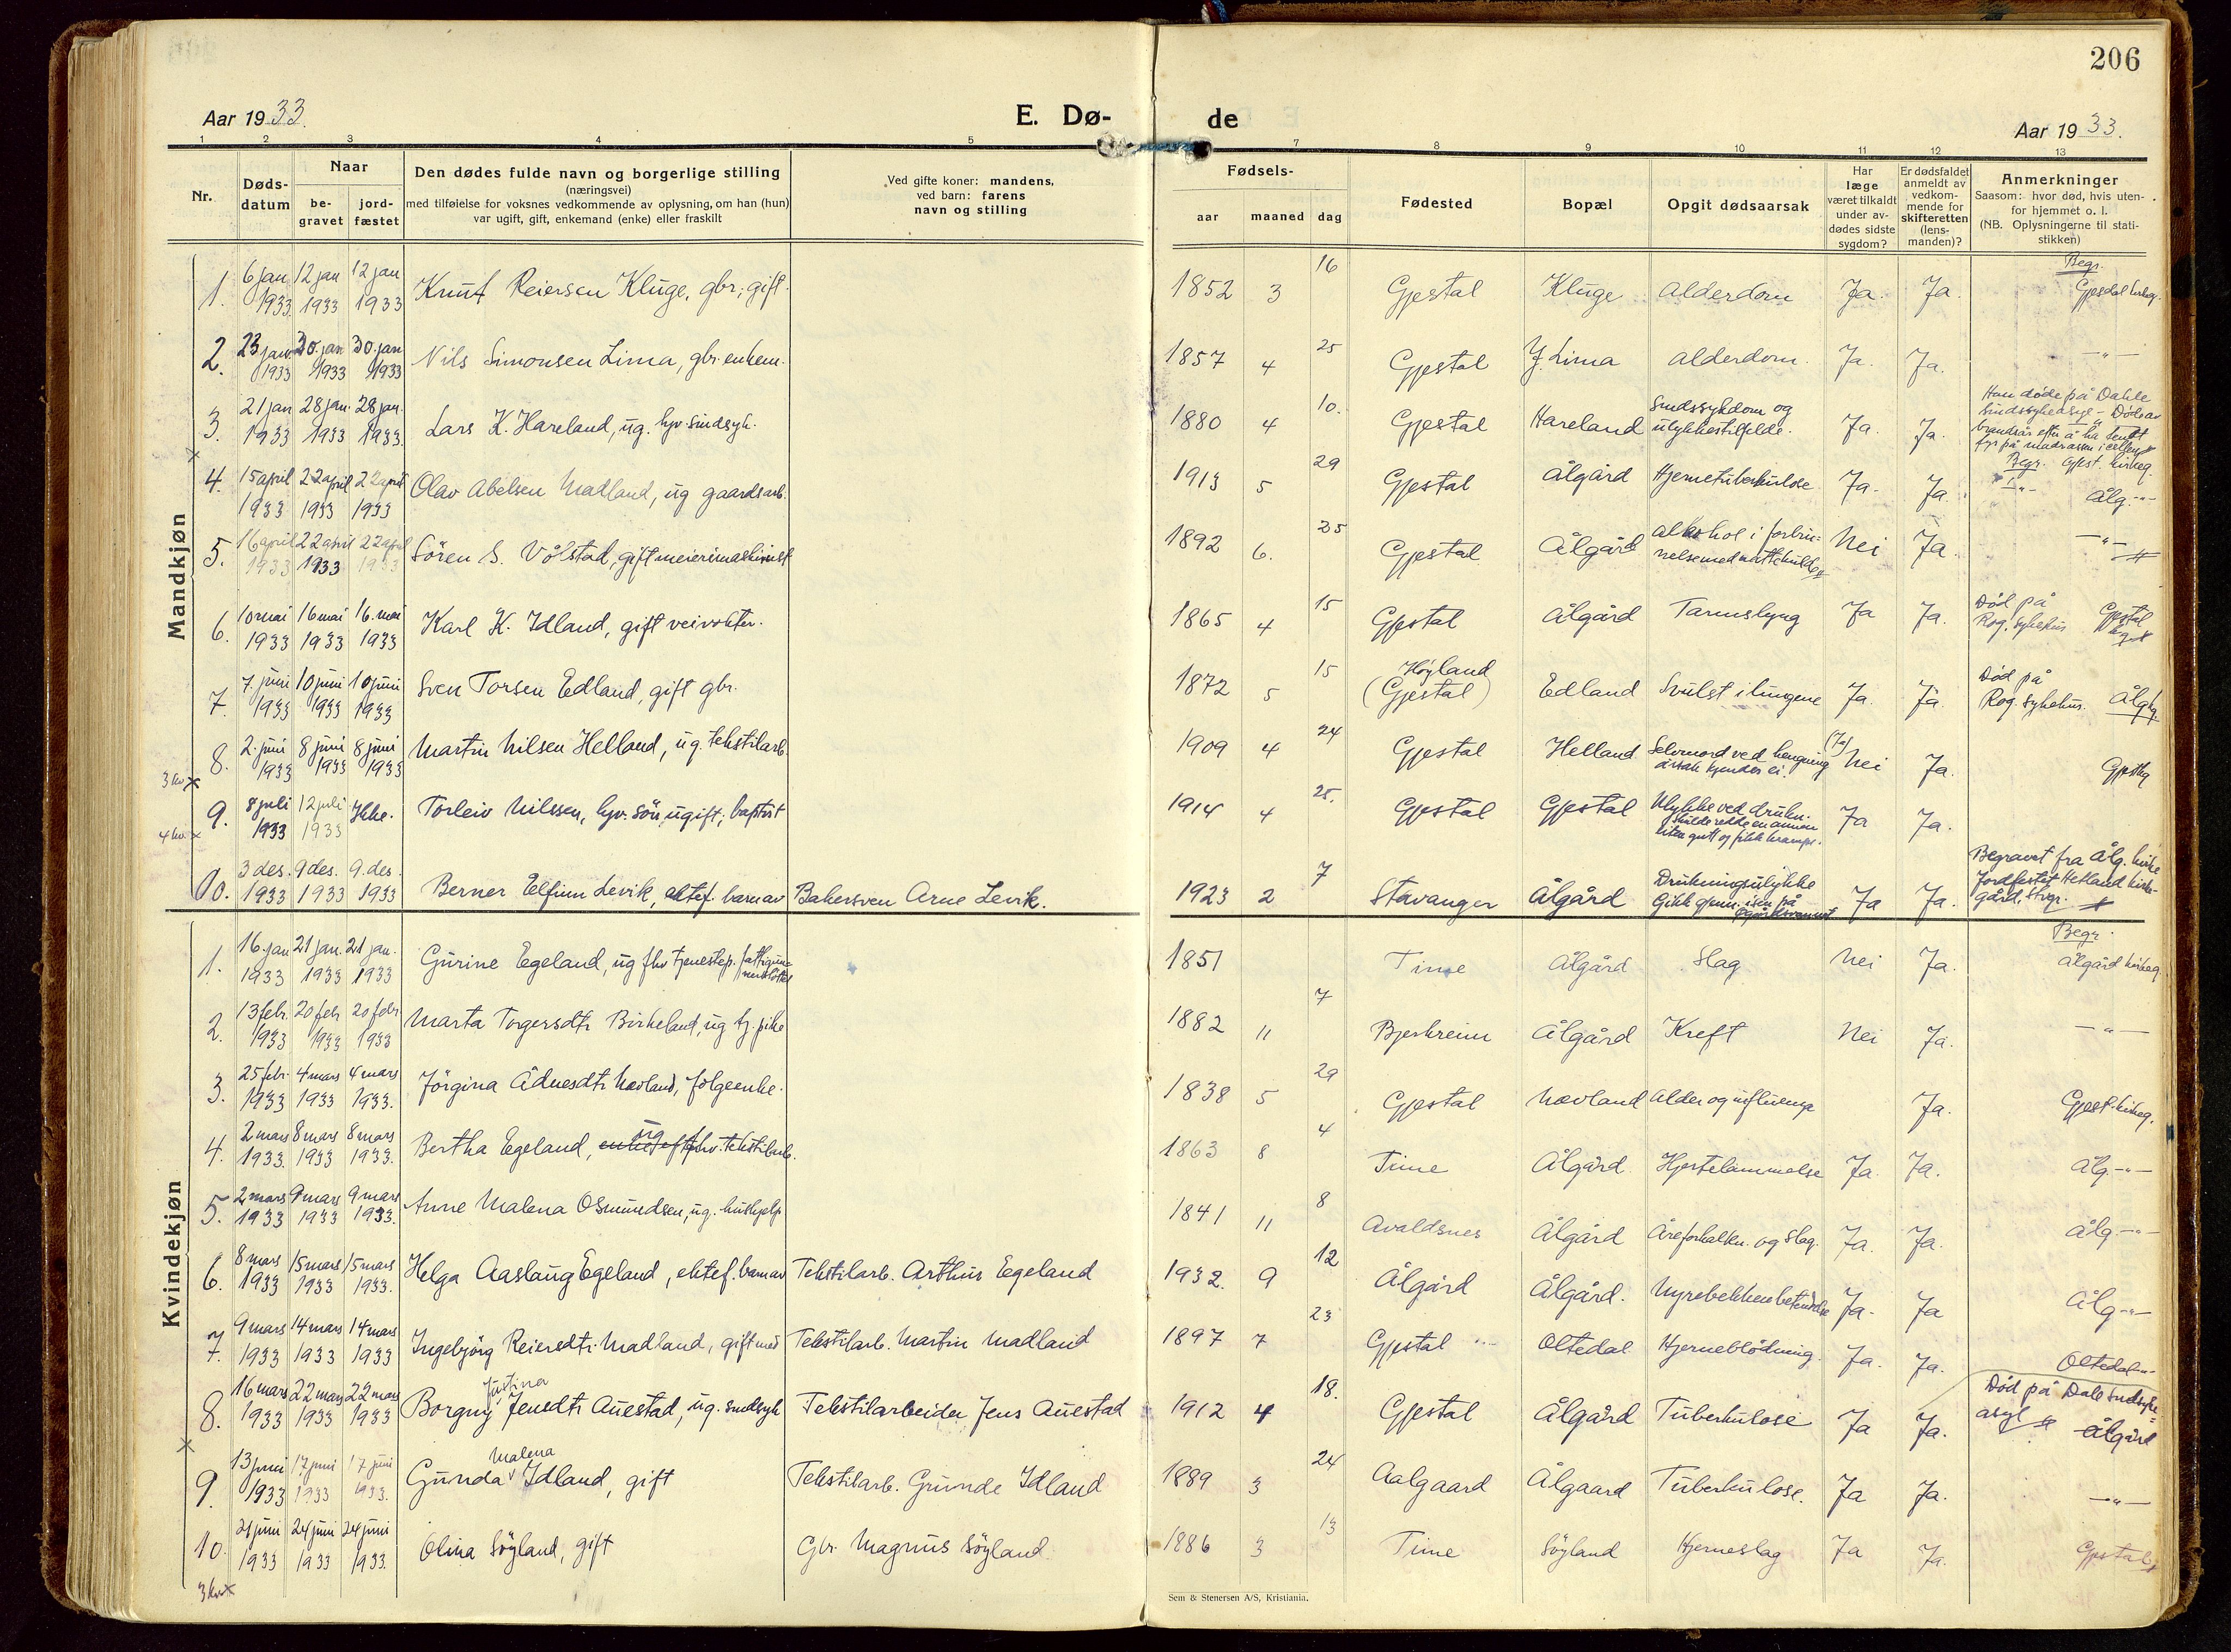 206
Aar 1933.
E. Dø-
de
Aar 1933.
1 2 3 4 5 7 8 9 10 11 12 13
Nr.
Døds-
datum
Naar
be-
gravet
jord-
fæstet
Den dødes fulde navn og borgerlige stilling
(næringsvei)
med tilføielse for voksnes vedkommende av oplysning, om han (hun)
var ugift, gift, enkemand (enke) eller fraskilt
Ved gifte koner: mandens,
ved barn: farens
navn og stilling
Fødsels-
aar maaned dag
Fødested
Bopæl
Opgit dødsaarsak
Har
læge
været tilkaldt
under av-
dødes sidste
sygdom?
Er dødsfaldet
anmeldt av
vedkom-
mende for
skifteretten
(lens-
manden)?
Anmerkninger
Saasom: hvor død, hvis uten-
for hjemmet o. l.
(NB. Oplysningerne til stati-
stikken)
Mandkjøn
1. 6 jan 1933. 12 jan 1933 12 jan 1933 Knut Reiersen Kluge, gbr; gift. 1852 3 16 Gjestal Kluge Alderdom Ja. Ja. Begr. Gjesdal kirkeg.
2. 23 jan 1933 30. jan 1933 30. jan 1933 Nils Simonsen Lima, gbr. enkem. 1857 4 25 Gjestal Y. Lima Alderdom. Ja. Ja. —"—
3. 21 jan 1933 28 jan. 1933 28 jan. 1933. Lars K. Hareland, ug. hjv. sindsyk. 1880 4 10. Gjestal Hareland Sindssykdom og ulykkestilfelde. Ja. Ja. Han døde på Dahle sindssykeasyl - Død av brandsår efter å ha tendt fyr på madrassen i cellen Begr. Gjest. kirkeg.
4. 15 april 1933 22 april 1933 22 april 1933 Olav Abelsen Madland, ug gaardsarb. 1913 5 29 Gjestal Ålgård Hjernetuberkulose Ja. Ja. —"— Ålg.—"—
5. 16 april 1933 22 april 1933 22 april 1933 Sören S. Völstad, gift meierimaskinist 1892 6. 25 Gjestal Ålgård Alkohol i forbin- nelse med nattekulde Nei Ja. —"—
6. 10 mai 1933 16 mai 1933 16. mai 1933 Karl K. Idland, gift veivokter. 1865 4 15 Gjestal Ålgård Tarmslyng Ja Ja. Død på Rog. sykehus Gjestal
7. 7. juni 1933 10 juni 1933 10 juni 1933 Sven Torsen Edland, gift gbr. 1872 5 15 Høyland (Gjestal) Edland Svulst i lungene Ja. Ja. Død på Rog. sykehus. Ålg kg.
8. 2. juni 1933 8 juni 1933 8 juni 1933 Martin Nilsen Helland, ug. tekstilarb. 1909 4 24 Gjestal Helland Selvmord ved hengning årsak kjendes ei. (Ja) Nei Ja. Gjestkg
3 kv. x
9. 8 juli 1933 12 juli 1933 Ikke. Torleiv Nilssen, hjv. sön, ugift; baptist 1914 4 25. Gjestal Gjestal Ulykke ved drukn. skulde redde en annen liten gutt og fikk krampe. Ja Ja.
4 kv. x
10. 3 des. 1933 9 des. 1933 9. des. 1933 Berner Elfinn Levik, ektef. barn av Bakersven Arne Levik. 1923 2 7 Stavanger Ålgård Drukningsulykke Gikk gjenn. isen på Ja Ja. Begravet fra Ålg. kirke Jordfestet Hetland kirke- gård, Stvgr.
Kvindekjøn
1. 16. jan 1933 21 jan. 1933 21 jan. 1933 Gurine Egeland, ug fhv tjenestep. 1851 Time Ålgård Slag Nei Ja. Begr. Ålgård kirkeg.
2. 13 febr. 1933 20 febr 1933 20 febr 1933 Marta Torgersdtr Birkeland, ug tj. pike 1882 11 7 Bjerkreim Ålgård Kreft Nei Ja. —"—
3. 25 febr. 1933 4 mars 1933 4 mars 1933. Jörgina Ådnesdtr Nævland, følgeenke. 1838 5 29 Gjestal Nævland Alder og influensa Ja. Gjest. kirkeg.
4. 2 mars 1933. 8 mars 1933 8 mars 1933. Bertha Egeland, ug fhv. tekstilarb. 1863 8 4 Time Ålgård. Hjertelammelse Ja. Ja. Ålg.—"—
5. 2 mars 1933 9 mars 1933 9 mars 1933. Anne Malena Osmundsen, ug. hushjelp 1841 11 8 Avaldsnes Ålgård Åreforkalkn. og slag. Ja. Ja. Ålg.—"—
6. 8 mars 1933 15 mars 1933 15 mars 1933. Helga Aaslaug Egeland, ektef. barn av Tekstilarb. Arthur Egeland 1932. 9 12 Ålgård Ålgård. Nyrebekkenbetendelse Ja. Ja Ålg—"—
7. 9 mars 1933 14 mars 1933 14 mars 1933 Ingebjörg Reiersdtr. Madland, gift med Tekstilarb. Martin Madland 1897 7 23 Gjestal Oltedal Hjerneblödning. Ja. Ja. Oltedal—"—
8. 16 mars 1933 22 mars 1933 22 mars 1933 Borgny Justina Jensdtr Auestad, ug. sindsyk Tekstilarbeider Jens Auestad 1912 4 18. Gjestal Ålgård Tuberkulose Ja Ja. Død på Dale sindsyke- asyl Ålgård
9. 13 juni 1933 17 juni 1933 17 juni 1933. Gunda Malena Idland, gift Tekstilarb. Gunde Idland 1889 3 24 Aalgaard Ålgaard Tuberkulose. Ja Ja. —"—
10. 21 juni 1933 24 juni 1933 24 juni 1933. Olina Söyland, gift Gbr. Magnus Söyland 1886 3 13 Time Söyland Hjerneslag Ja Ja. Gjestal
3 kv. x
Sem & Stenersen A/S, Kristiania.